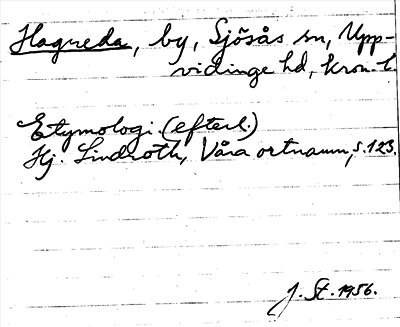 Hagreda, by, Sjösås sn, Upp-
vidinge hd, Kron. l.
Etymologi. (efterl.)
Hj. Lindroth, Våra ortnamn, s. 123.
J. St. 1956.